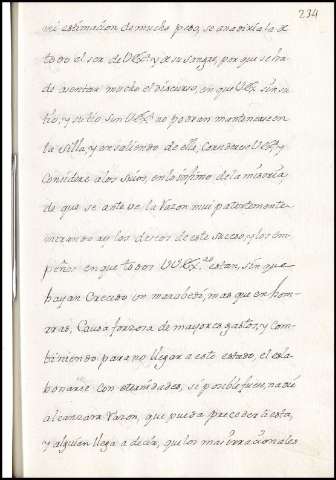 234
mi estimacion de mucho peso, se anadiria la de
todo el ser de VEx.ª y de su sangre, por que se ha
de asentar mucho el discurso, en que VEx. sin su
tio, y su tio sin VEx.ª no podran mantenerse en
la silla, y en saliendo de ella, Considere VEx.ª y
Considere a los suios, en lo infimo de la miseria
de que se ante ve la Razon mui patentemente
mirando oy las deudas de este suceso, y los em
peños en que todos VVEx.as estan, sin que
hayan Crecido un marabedi, mas que en hon
rras, Causa forzosa de mayores gastos, y com
biniendo para no llegar a este estado, el esla
bonarse con eternidades, se posible fuera, nadie
alcanzara Razon, que pueda preceder a esta,
y alguien llega a decir, que los mas irracionales